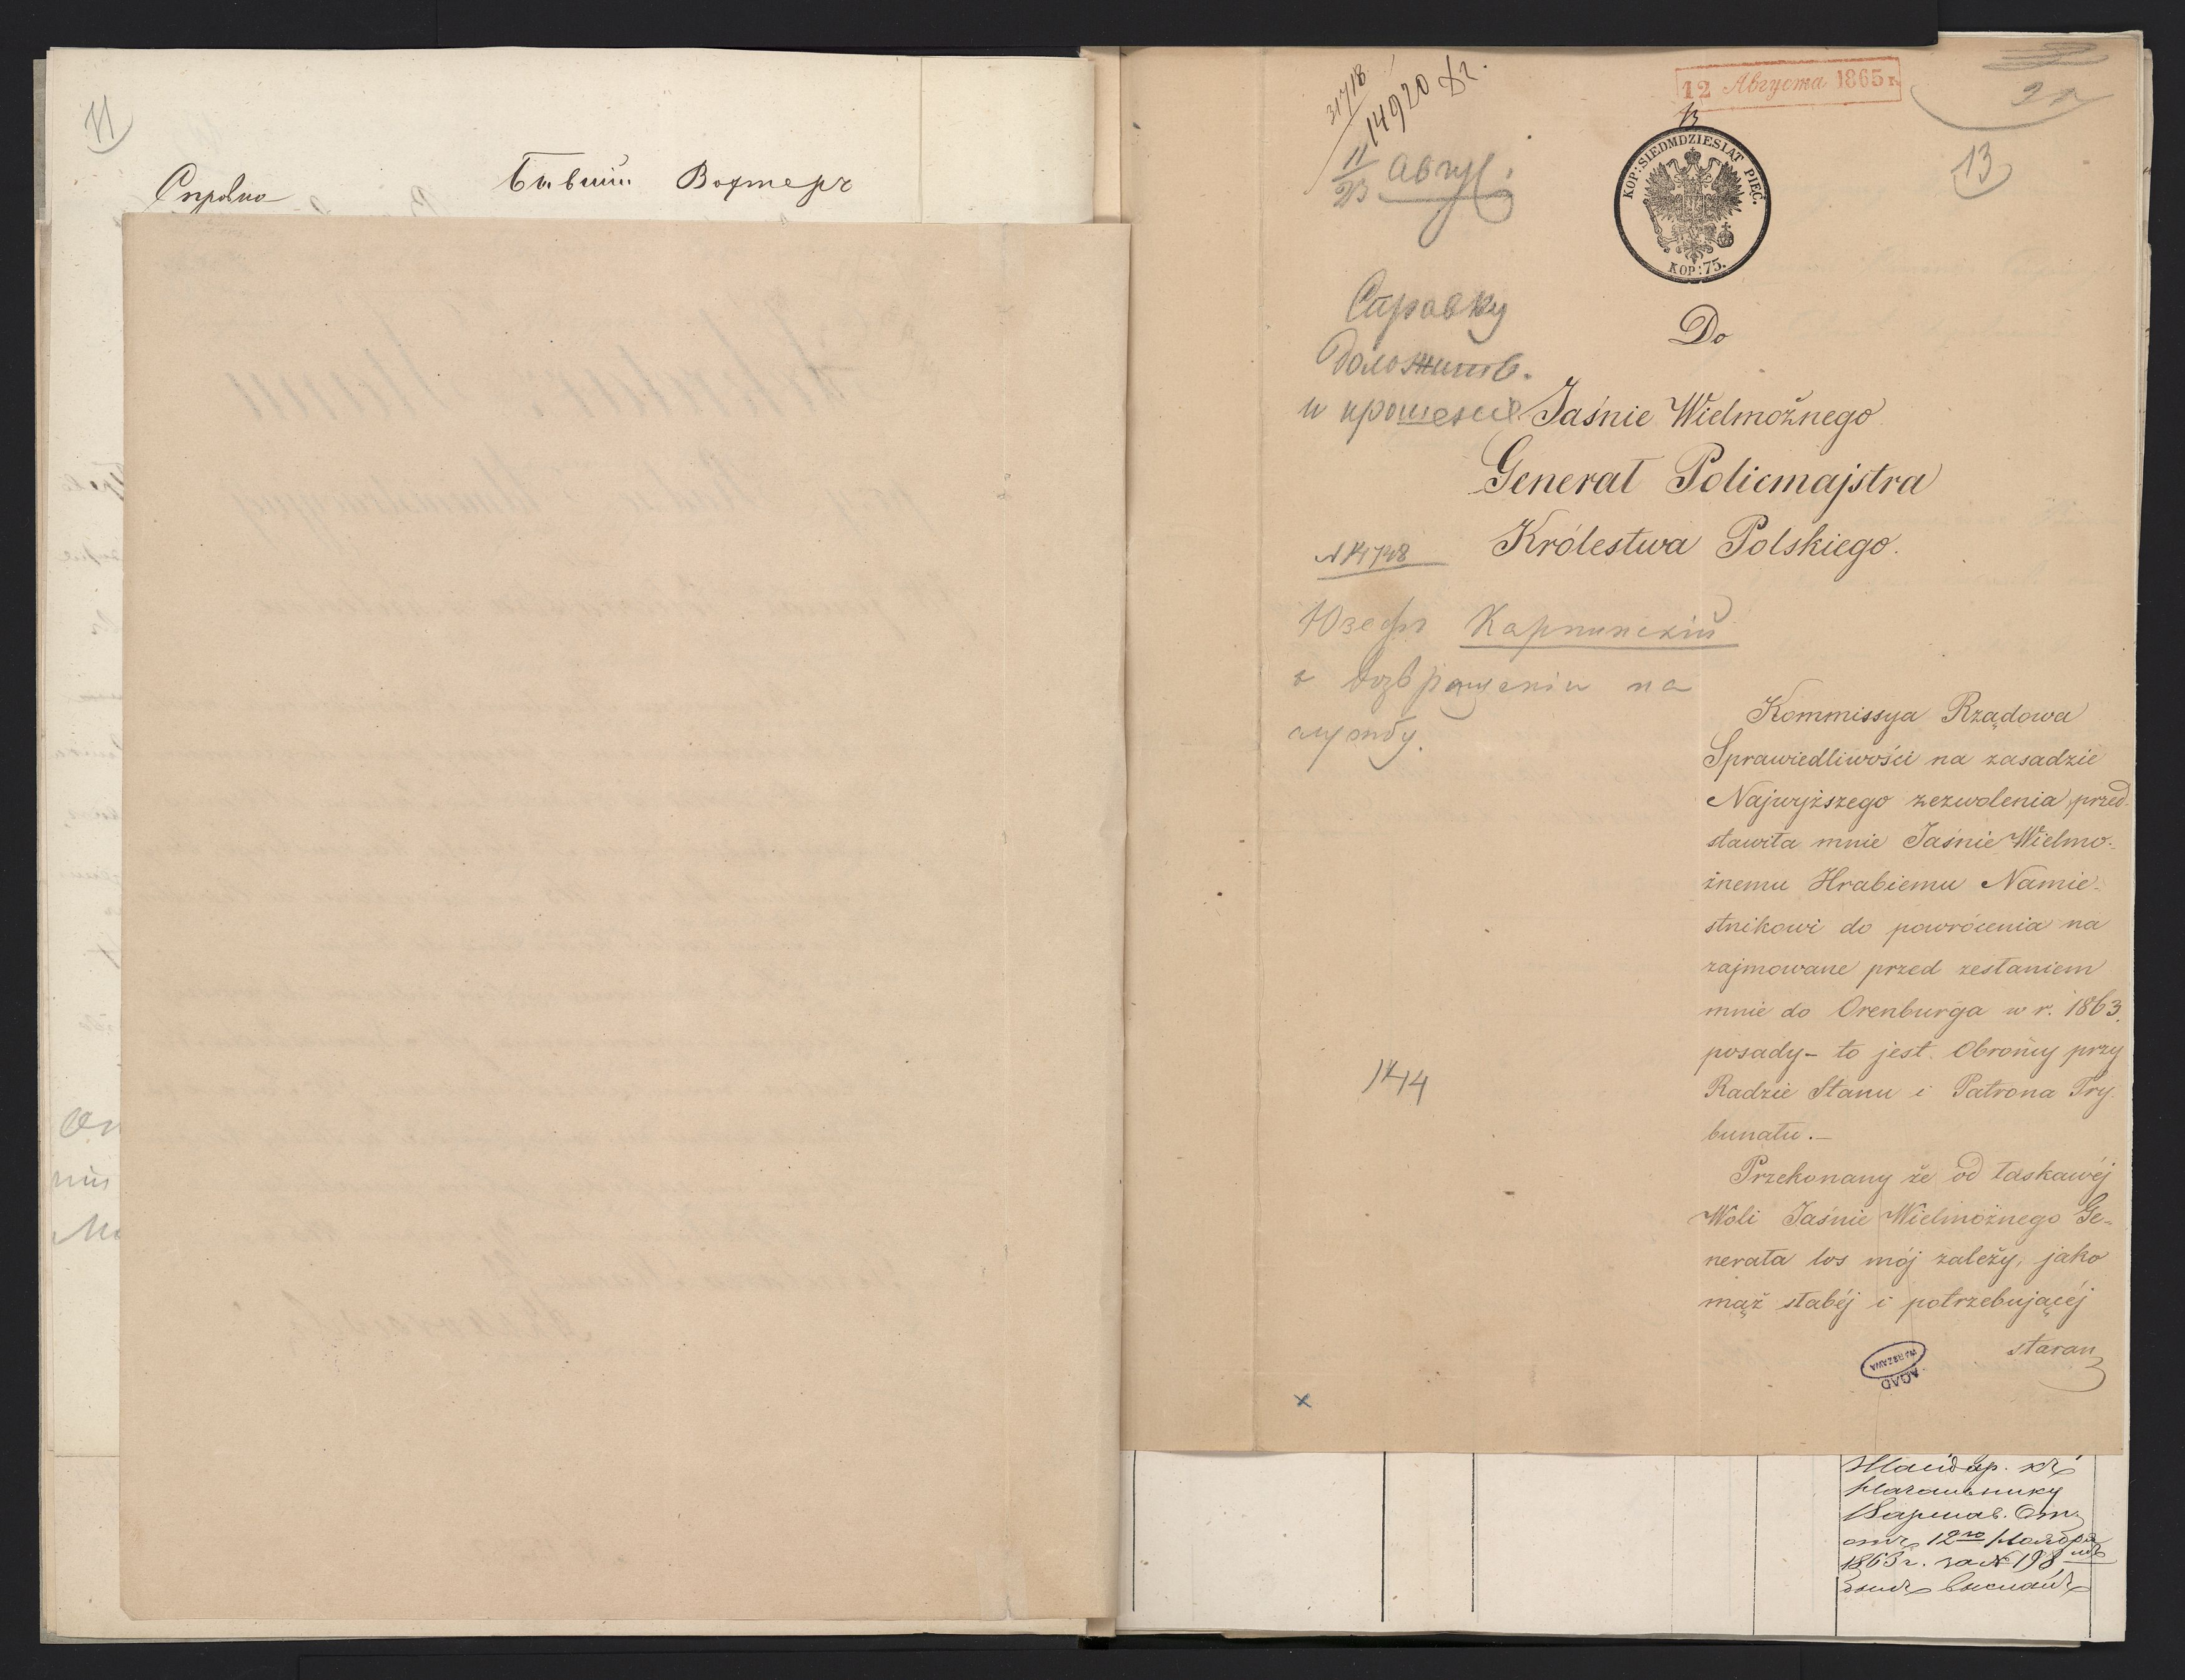 11
Справка
Бывшій Вахтеръ
31718
14920
12 Августа 1865 г.
13
11/23 Авгус.
KOP: SIEDMDZIESIĄT PIĘĆ.
KOP: 75.
13
Справку
доложить.
и прошеніе
Do
Jaśnie Wielmożnego
Generał Policmajstra
Królestwa Polskiego.
Юзефъ Карпинскій
о возвращеніи на
службу.
Kommissya Rządowa
Sprawiedliwości na zasadzie
Najwyższego zezwolenia przed-
stawiła mnie Jaśnie Wielmo-
żnemu Hrabiemu Namie-
stnikowi do powrócenia na
zajmowane przed zesłaniem
mnie do Orenburga w r. 1863.
posady – to jest Obrońcy przy
Radzie Stanu i Patrona Try-
bunału. –
Przekonany że od łaskawéj
Woli Jaśnie Wielmożnego Ge-
nerała los mój zależy, jako
mąż słabéj i potrzebującéj
staran
1414
AGAD
WARSZAWA
x
Жандар. къ
Начальнику
Варшав. Отд.
отъ 12го Ноября
1863 г. за № 198
высланъ